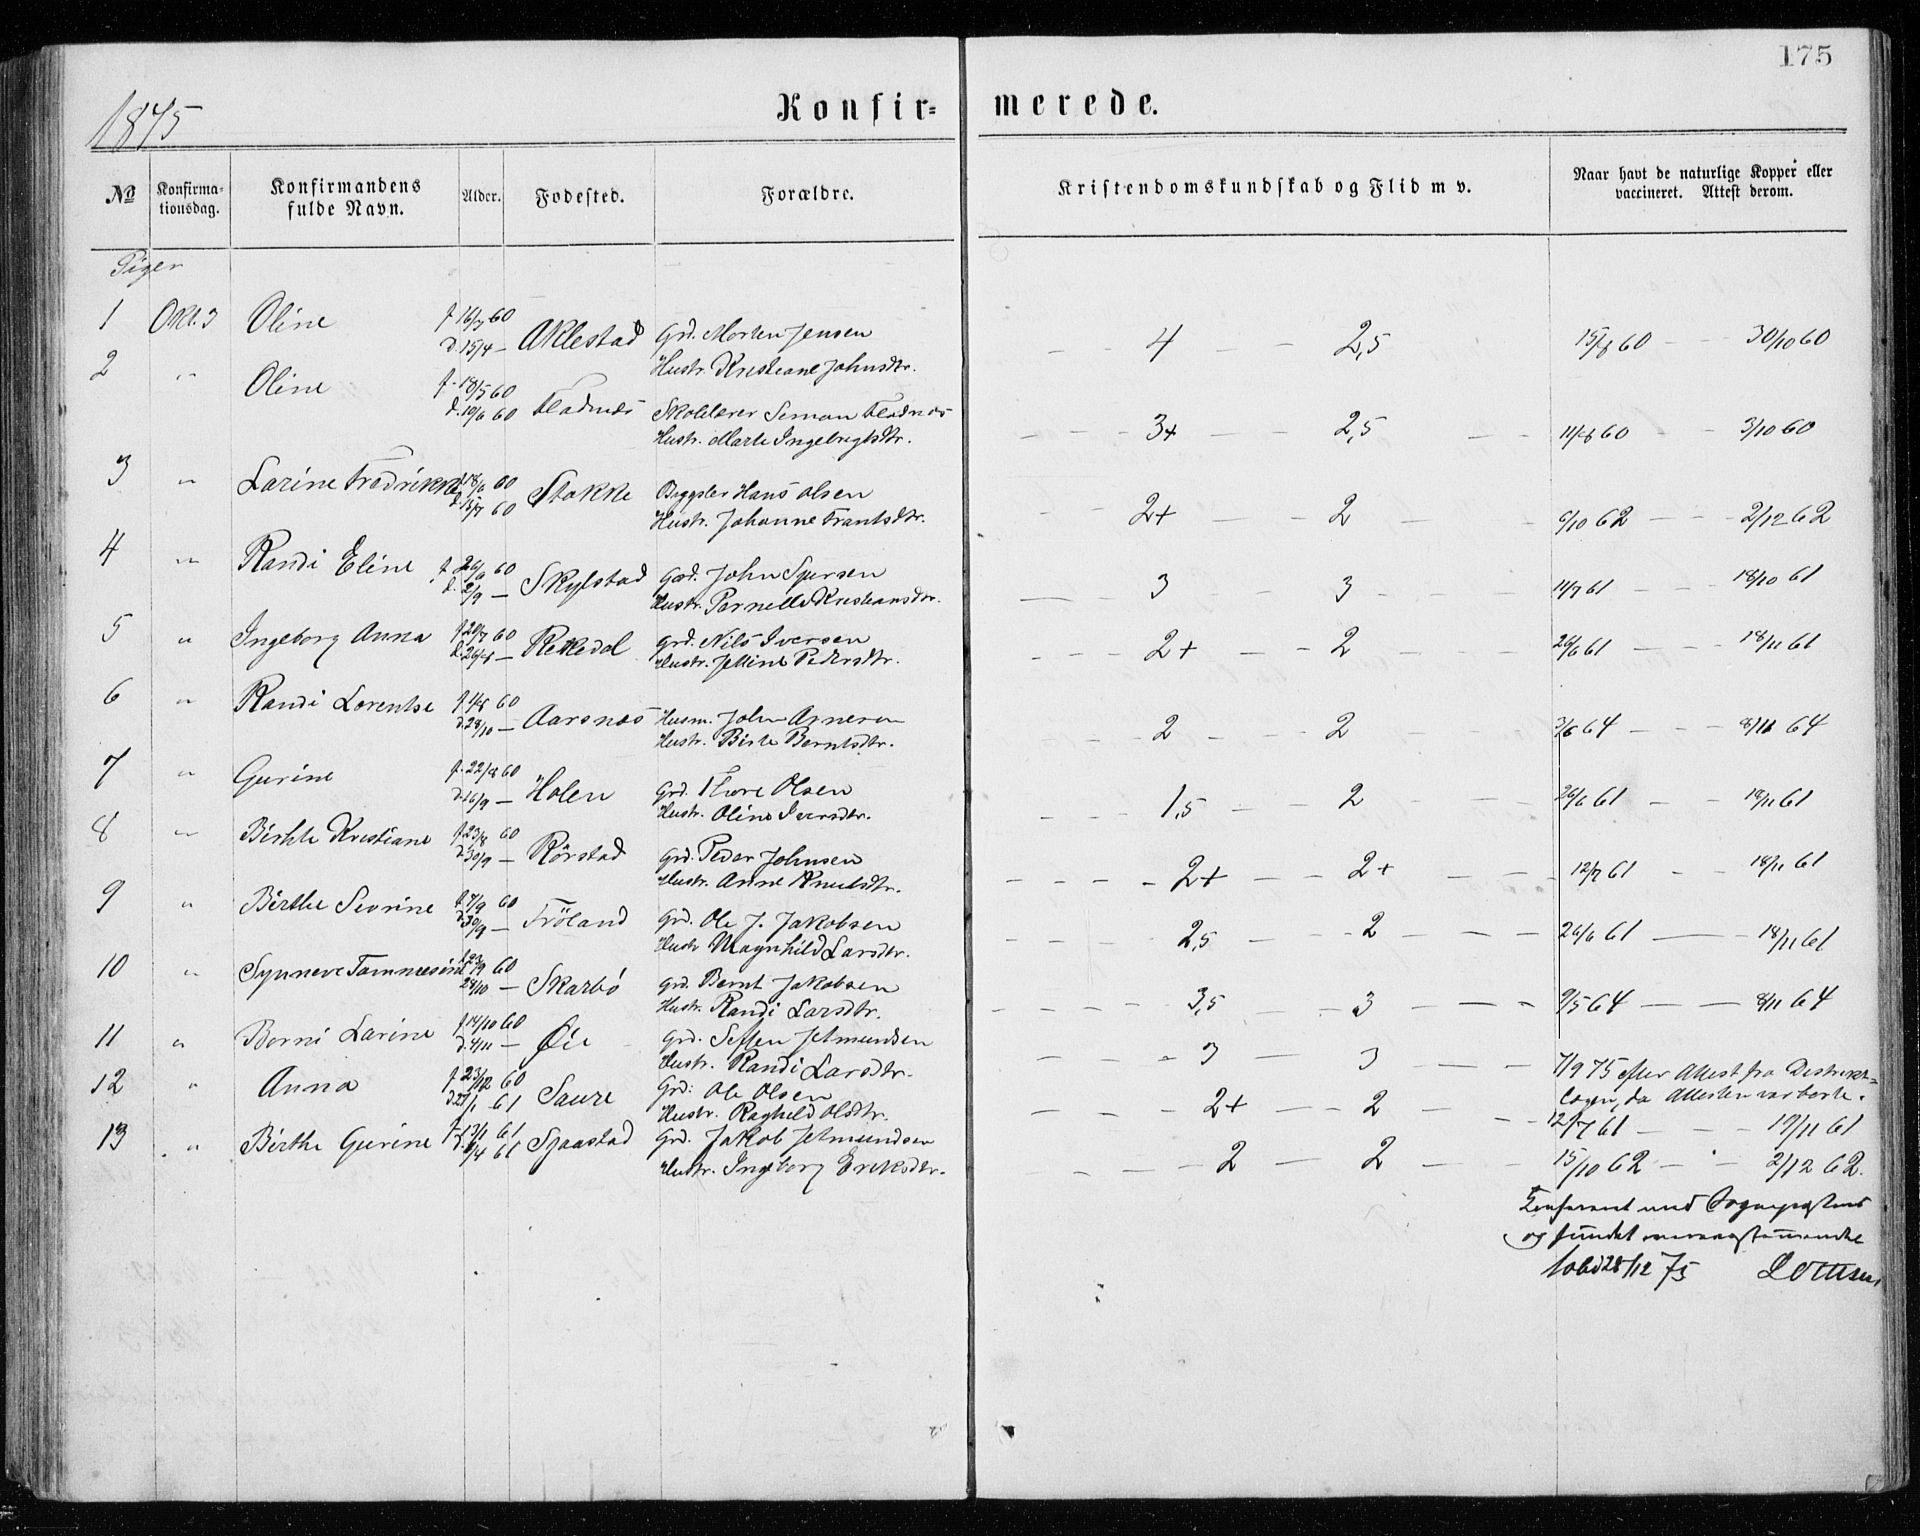 175
1875
Konfir= merede.
№ Konfirma-tionsdag. Konfirmandens fulde Navn. Alder. Fødested. Forældre. Kristendomskundskab og Flid m v. Naar havt de naturlige Kopper eller vaccineret. Attest derom.
Piger
1 Okt. 3 Oline f 16/3 60 Aklestad Grd. Morten Jensen
d. 15/4 — Hustr. Kristiane Johnsdtr. 4 2,5 15/8 60 30/10 60
2 " Oline f. 18/5 60 Fladnæs Skolelærer Simon Fladnæs
d. 10/6 60 Hustr. Marte Ingebrigtsdtr. 3+ 2,5 11/8 60 3/10 60
3 " Larine Fredrikke 18/6 60 Stokke Bygsler Hans Olsen
d. 15/7 60 Hustr. Johanne Frantsdtr. 2+ 2 6/10 62 2/12 62
4 " Randi Eline f. 26/6 60 Skylstad Grd. John Syversen
d. 2/9 — Hustr. Pernille Kristiansdtr. 3 3 11/7 61 18/10 61
5 " Ingeborg Anna f 20/7 60 Rekkedal Grd. Nils Iversen
d. 26/8 — Hustr. Jettine Pedersdtr. 2+ 2 26/6 61 18/11 61
6 " Randi Lorentse f. 4/8 60 Aarsnæs Husm. John Arnesen
d. 28/10 — Hustr. Birte Berntsdtr. 2 2 3/6 64 8/11 64
7 " Gurine f. 22/8 60 Holen Grd. Thore Olsen
d. 16/9 — Hustr. Oline Iversdtr. 1,5 2 26/6 61 18/11 61
8 " Birthe Kristiane f 23/8 60 Rörstad Grd. Peder Johnsen
d 30/9 — Hustr. Anne Knutsdtr. 2+ 2+ 12/7 61 18/11 61
9 " Birthe Sevrine f 7/9 60 Fröland Grd. Ole J. Jakobsen
d 30/9 — Hustr Magnhild Larsdtr. 2,5 2 26/6 61 18/11 61
10 " Synneve Tommesine f 23/9 60 Skarbö Grd. Bernt Jakobsen
28/10 — Hustr. Randi Larsdtr. 3,5 3 9/5 64 8/11 64
11 " Berni Larine f 14/10 60 Øie Grd. Steffen Jetmundsen
d. 4/11 — Hustr. Randi Larsdtr. 3 3 7/9 75 efter Attest fra Distrikt=
lægen, da Attesten var borte.
12 " Anna f 23/12 60 Saure Grd. Ole Olsen
d 27/1 61 Hustr. Raghild Olsdtr. 2+ 2 12/7 61 19/11 61
13 " Birthe Gurine f. 13/1 61 Sjaastad Grd. Jakob Jetmundsen
d. 1/4 61 Hustr. Ingeborg Eriksdtr. 2 2 15/10 62 2/12 62.
Konfereret med Sognepræstens
og fundet overensstemmende
28/12 75